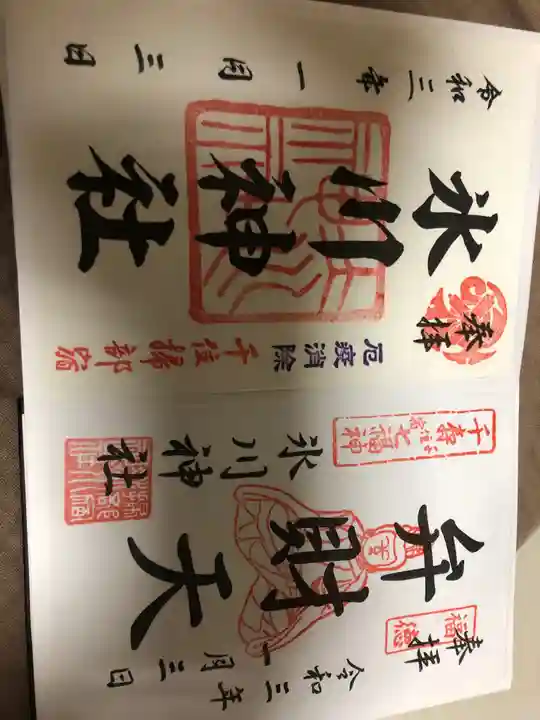 福徳
奉拝
令和三年一月三日
弁財天
千寿七福神
氷川神社
厄疫消除 千住掃部宿
奉拝
氷川神社
令和三年一月三日